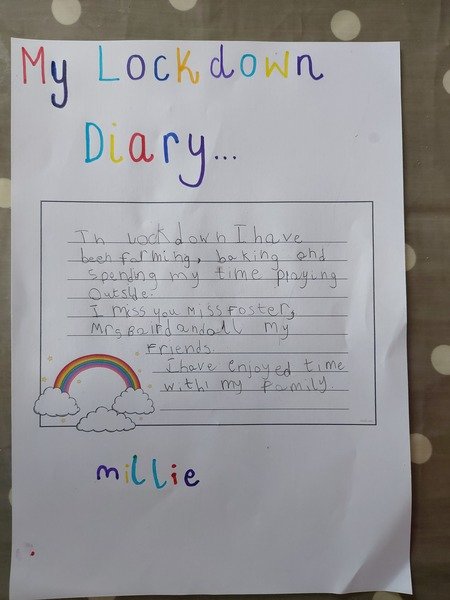 My Lockdown
Diary...
In lockdown I have
been farming, baking and
spending my time playing
outside.
I miss you Miss Foster,
Mrs Baird and all my
friends.
I have enjoyed time
with my family
millie